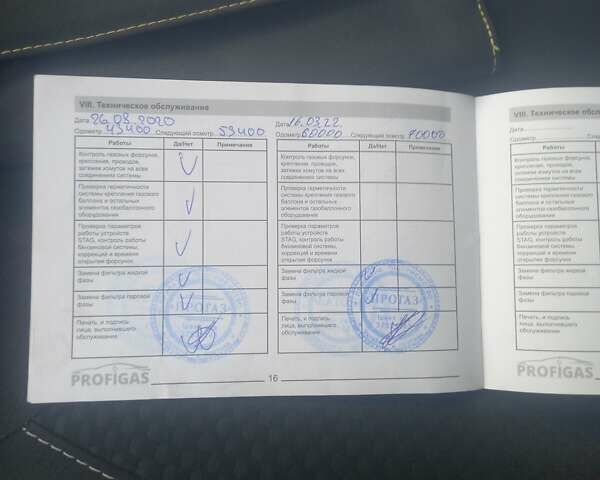 VIII. Техническое обслуживание
Дата 26.08.2020
Одометр 43400 Следующий осмотр 53400
Работы Да/Нет Примечания
Контроль газовых форсунок,
крепления, проводов,
затяжка хомутов на всех
соединениях системы
Проверка герметичности
системы крепления газового
баллона и остальных
элементов газобаллонного
оборудования
Проверка параметров
работы устройств
STAG, контроль работы
бензиновой системы,
коррекций и времени
открытия форсунок
Замена фильтра жидкой
фазы
Замена фильтра паровой
фазы
Печать, и подпись
лица, выполнившего
обслуживание
ПРОГАЗ
PROFIGAS
Дата 16.03.22
Одометр 60000 Следующий осмотр 70000
Работы Да/Нет Примечания
Контроль газовых форсунок,
крепления, проводов,
затяжка хомутов на всех
соединениях системы
Проверка герметичности
системы крепления газового
баллона и остальных
элементов газобаллонного
оборудования
Проверка параметров
работы устройств
STAG, контроль работы
бензиновой системы,
коррекций и времени
открытия форсунок
Замена фильтра жидкой
фазы
Замена фильтра паровой
фазы
Печать, и подпись
лица, выполнившего
обслуживание
ПРОГАЗ
16
VIII. Техническое обслуж
Дата
Одометр Следующий
Работы Да
Контроль газовых форсунок,
крепления, проводов,
затяжка хомутов на всех
соединениях системы
Проверка герметичности
системы крепления газового
баллона и остальных
элементов газобаллонного
оборудования
Проверка параметров
работы устройств
STAG, контроль работы
бензиновой системы,
коррекций и времени
открытия форсунок
Замена фильтра жидкой
фазы
Замена фильтра паровой
фазы
Печать, и подпись
лица, выполнившего
обслуживание
PROFIGAS